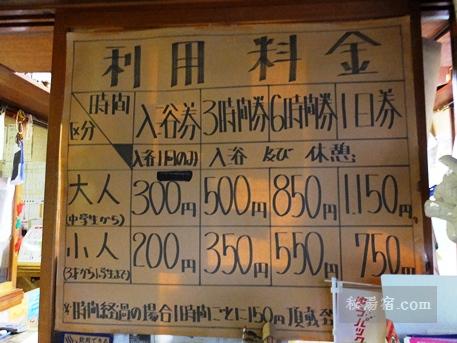 利用料金
時間
区分
入浴券 3時間券 6時間券 1日券
入浴1回のみ 入浴 及び 休憩
大人
(中学生から)
300円 500円 850円 1,150円
小人
200円 350円 550円 750円
(3才から小5生まで)
※時間経過の場合1時間ごとに150円頂戴
秘湯宿.com